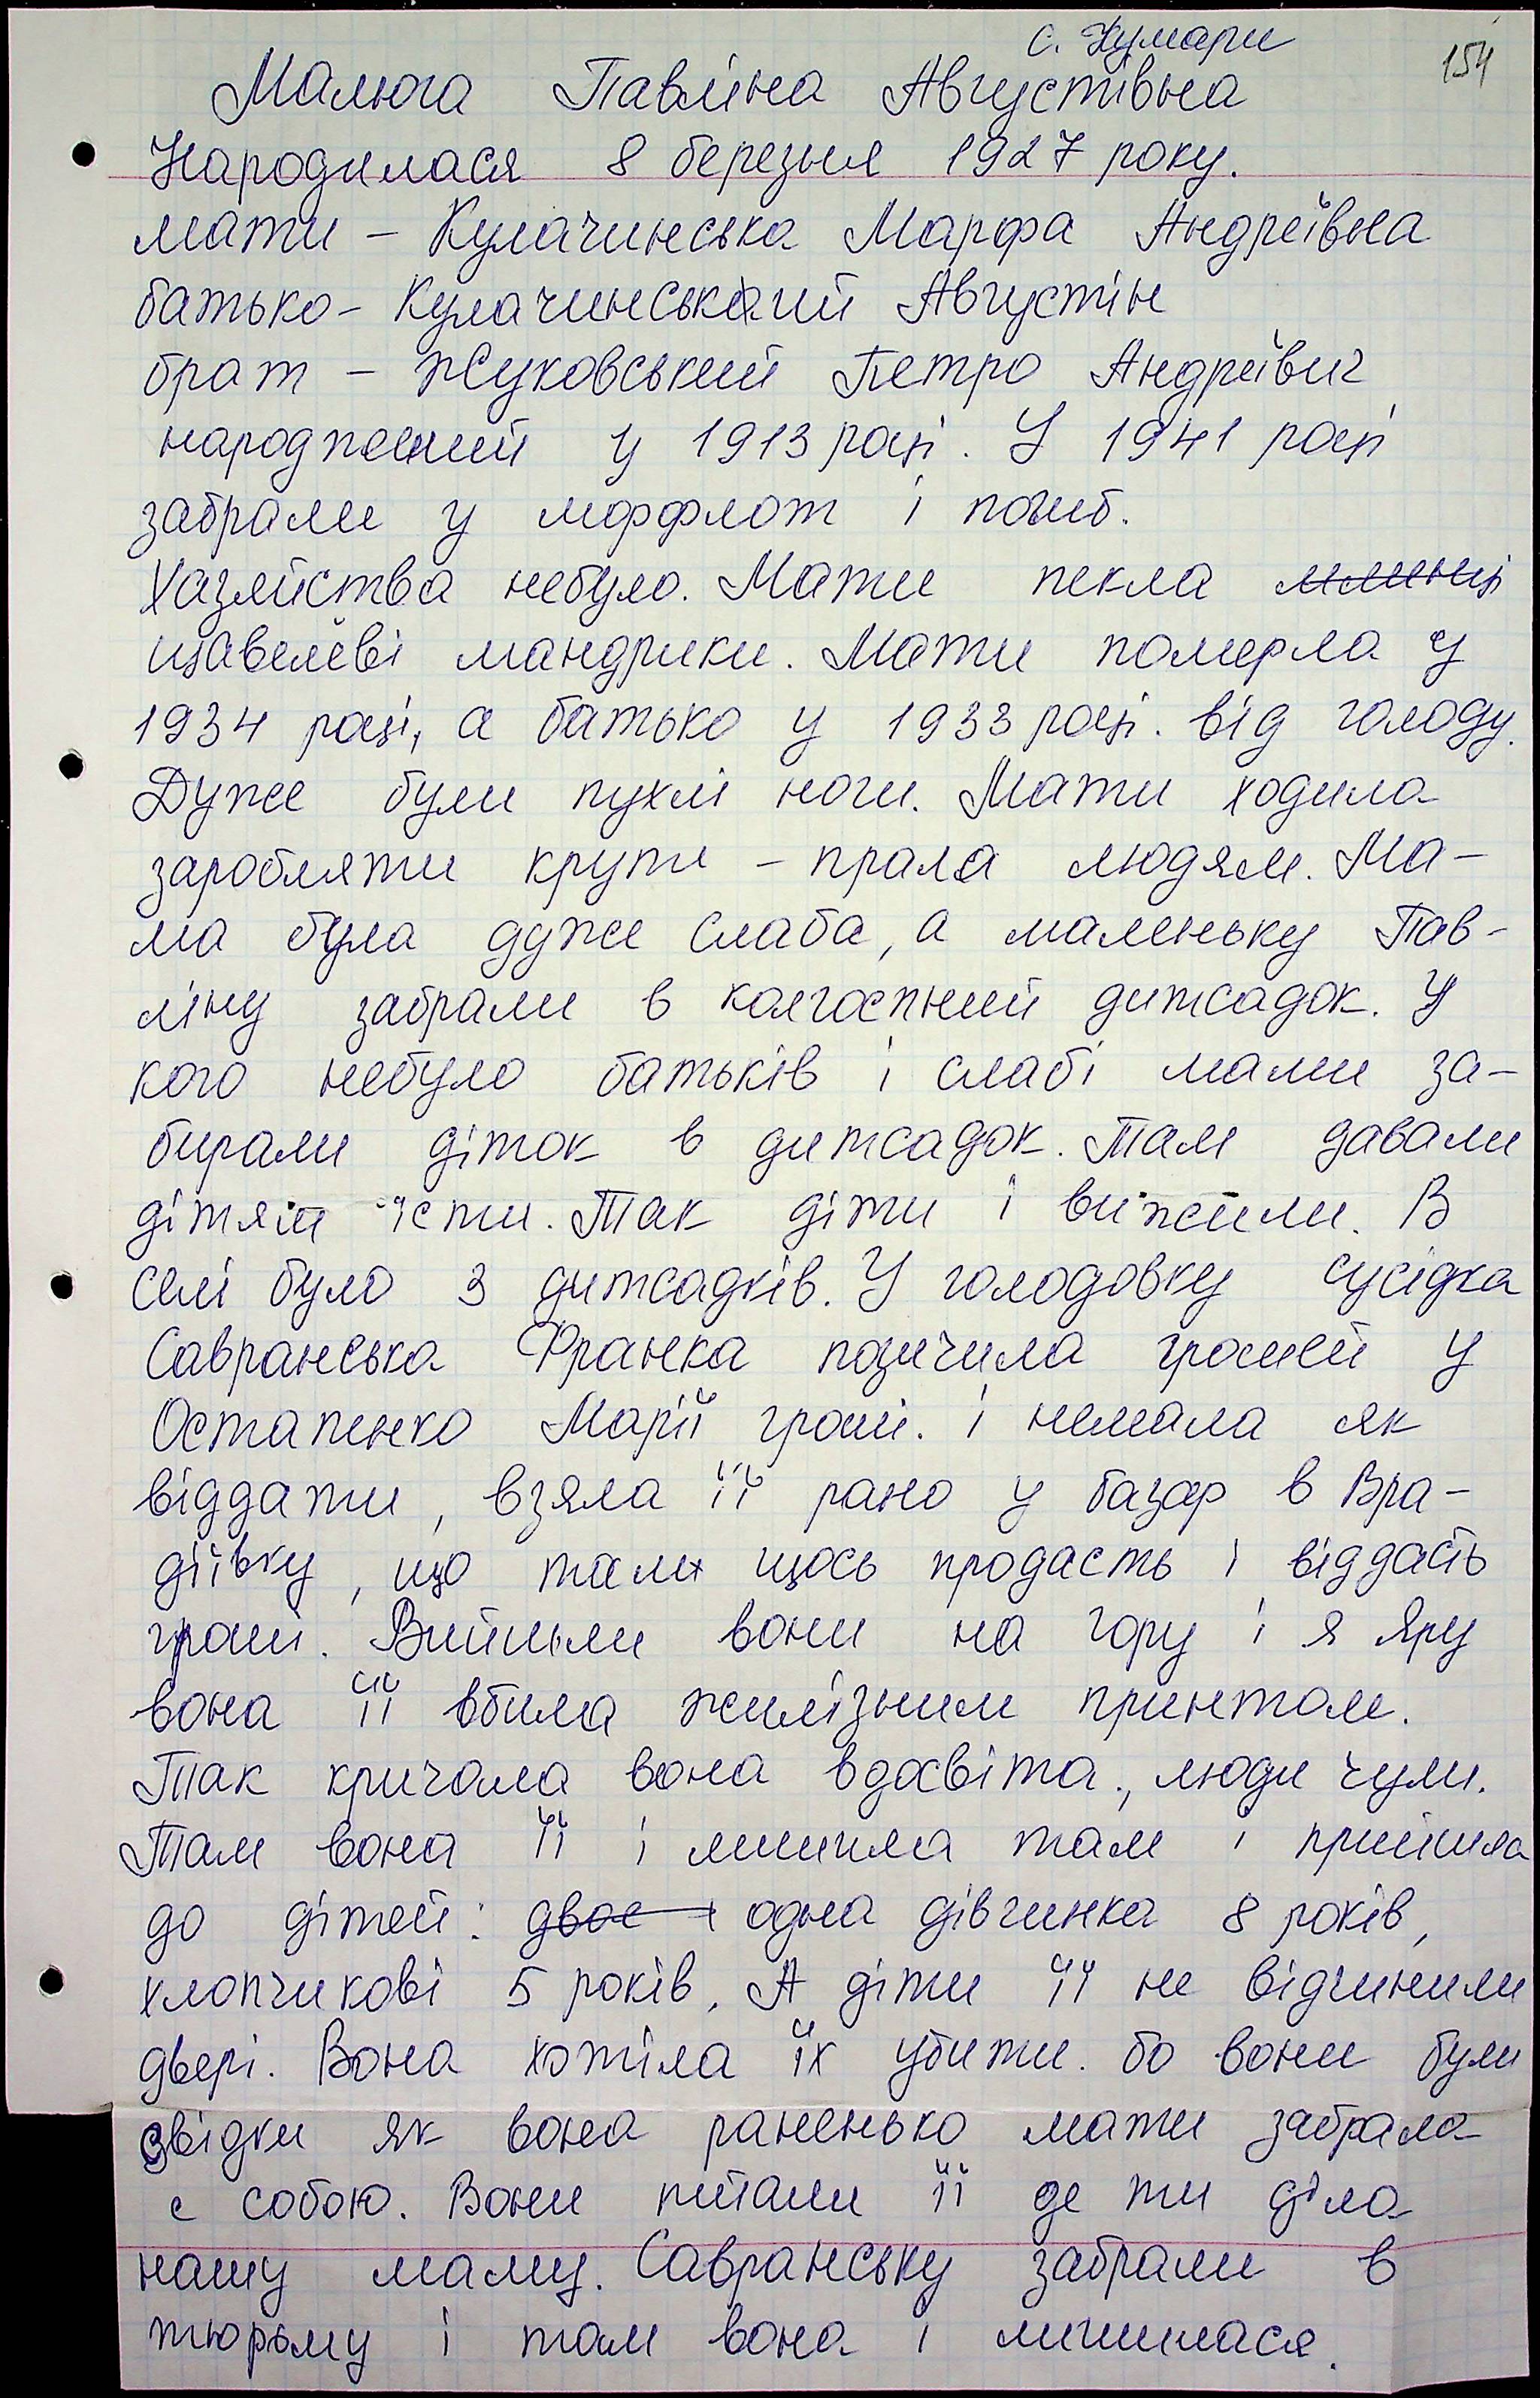 с. Кумари
154
Малюга Павліна Августівна
Народилася 8 березня 1927 року.
мати – Кулачинська Марфа Андреївна
батько – Кулачинський Августін
брат – Жуковський Петро Андреївич
народжений у 1913 році. У 1941 році
забрали у морфлот і погиб.
Хазяйства небуло. Мати пекла млинці
щавелеві мандрики. Мати померла у
1934 році, а батько у 1933 році. від голоду.
Дуже були пухлі ноги. Мати ходила
заробляти крупи – прала людям. Ма-
ма була дуже слаба, а маленьку Пав-
ліну забрали в колгоспний дитсадок. У
кого небуло батьків і слабі мами за-
бирали діток в дитсадок. Там давали
дітям їсти. Так діти і вижили. В
селі було 3 дитсадків. У голодовку сусідка
Савранська Франка позичила грошей у
Остапенко Марії гроші. і немала як
віддати, взяла її рано у базар в Вра-
діївку, що там щось продасть і віддасть
гроші. Вийшли вони на гору і я Яру
вона її вбила желізним принтом.
Так кричала вона вдосвіта., люди чули.
Там вона її і лишила там і прийшла
до дітей: двоє одна дівчинка 8 років,
хлопчикові 5 років. А діти її не відчинили
двері. Вона хотіла їх убити. бо вони були
свідки як вона раненько мати забрала
с собою. Вони питали її де ти діла
нашу маму. Савранську забрали в
тюрьму і там вона і лишилася.